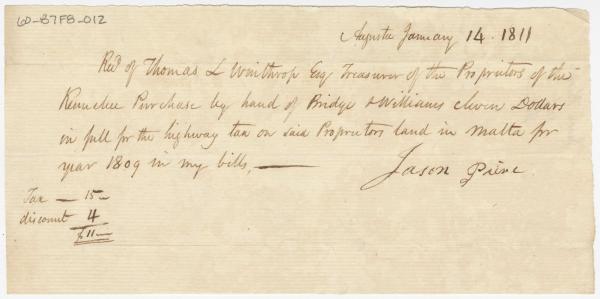 60-87F8-012
Augusta January 14. 1811
Recd of Thomas L Winthrop Esq Treasurer of the Proprietors of the
Kennebec Purchase by hand of Bridge & Williams eleven Dollars
in full for the highway tax on said Proprietors land in Malta for
year 1809 in my bills, —
Jason Pierce
Tax — 15 —
discount 4
$11 —